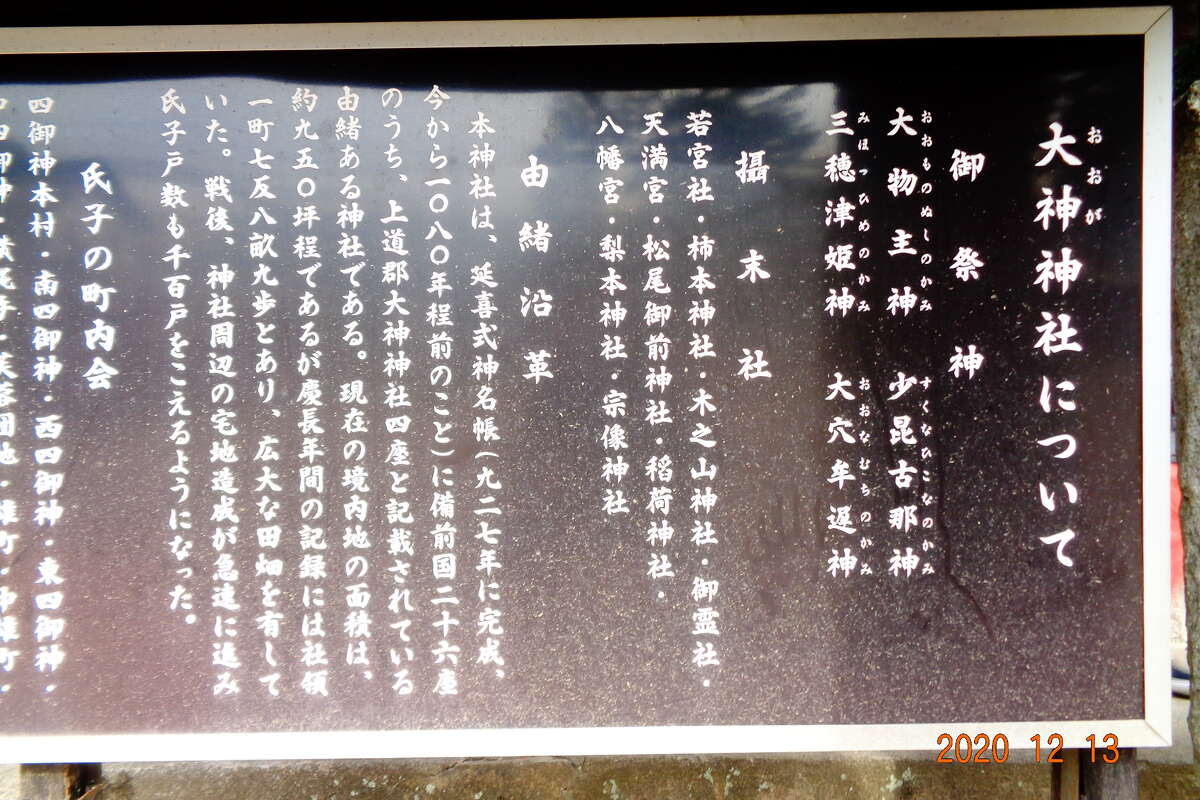 大神神社について
おおが
御祭神
大物主神　少昆古那神
おおものぬしのかみ　すくなひこなのかみ
三穂津姫神　大穴牟遅神
みほつひめのかみ　おおなむちのかみ
攝末社
若宮社・柿本神社・木之山神社・御霊社・
天満宮・松尾御前神社・稲荷神社・
八幡宮・梨本神社・宗像神社
由緒沿革
本神社は、延喜式神名帳(九二七年に完成、
今から一〇八〇年程前のこと)に備前国二十六座
のうち、上道郡大神神社四座と記載されている
由緒ある神社である。現在の境内地の面積は、
約九五〇坪程であるが慶長年間の記録には社領
一町七反八畝九歩とあり、広大な田畑を有して
いた。戦後、神社周辺の宅地造成が急速に進み
氏子戸数も千百戸をこえるようになった。
氏子の町内会
四御神本村・南四御神・西四御神・東四御神・
2020 12 13